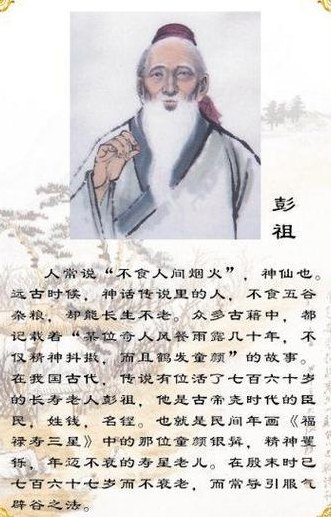 彭祖
人常说“不食人间烟火”，神仙也。
远古时候，神话传说里的人，不食五谷
杂粮，却能长生不老。众多古籍中，都
记载着“某位奇人风餐雨露几十年，不
仅精神抖擞，而且鹤发童颜”的故事。
在我国古代，传说有位活了七百六十岁
的长寿老人彭祖，他是古帝尧时代的臣
民，姓钱，名铿。也就是民间年画《福
禄寿三星》中的那位童颜银髯，精神矍
铄，年迈不衰的寿星老儿。在殷末时已
七百六十七岁而不衰老，而常导引服气
辟谷之法。